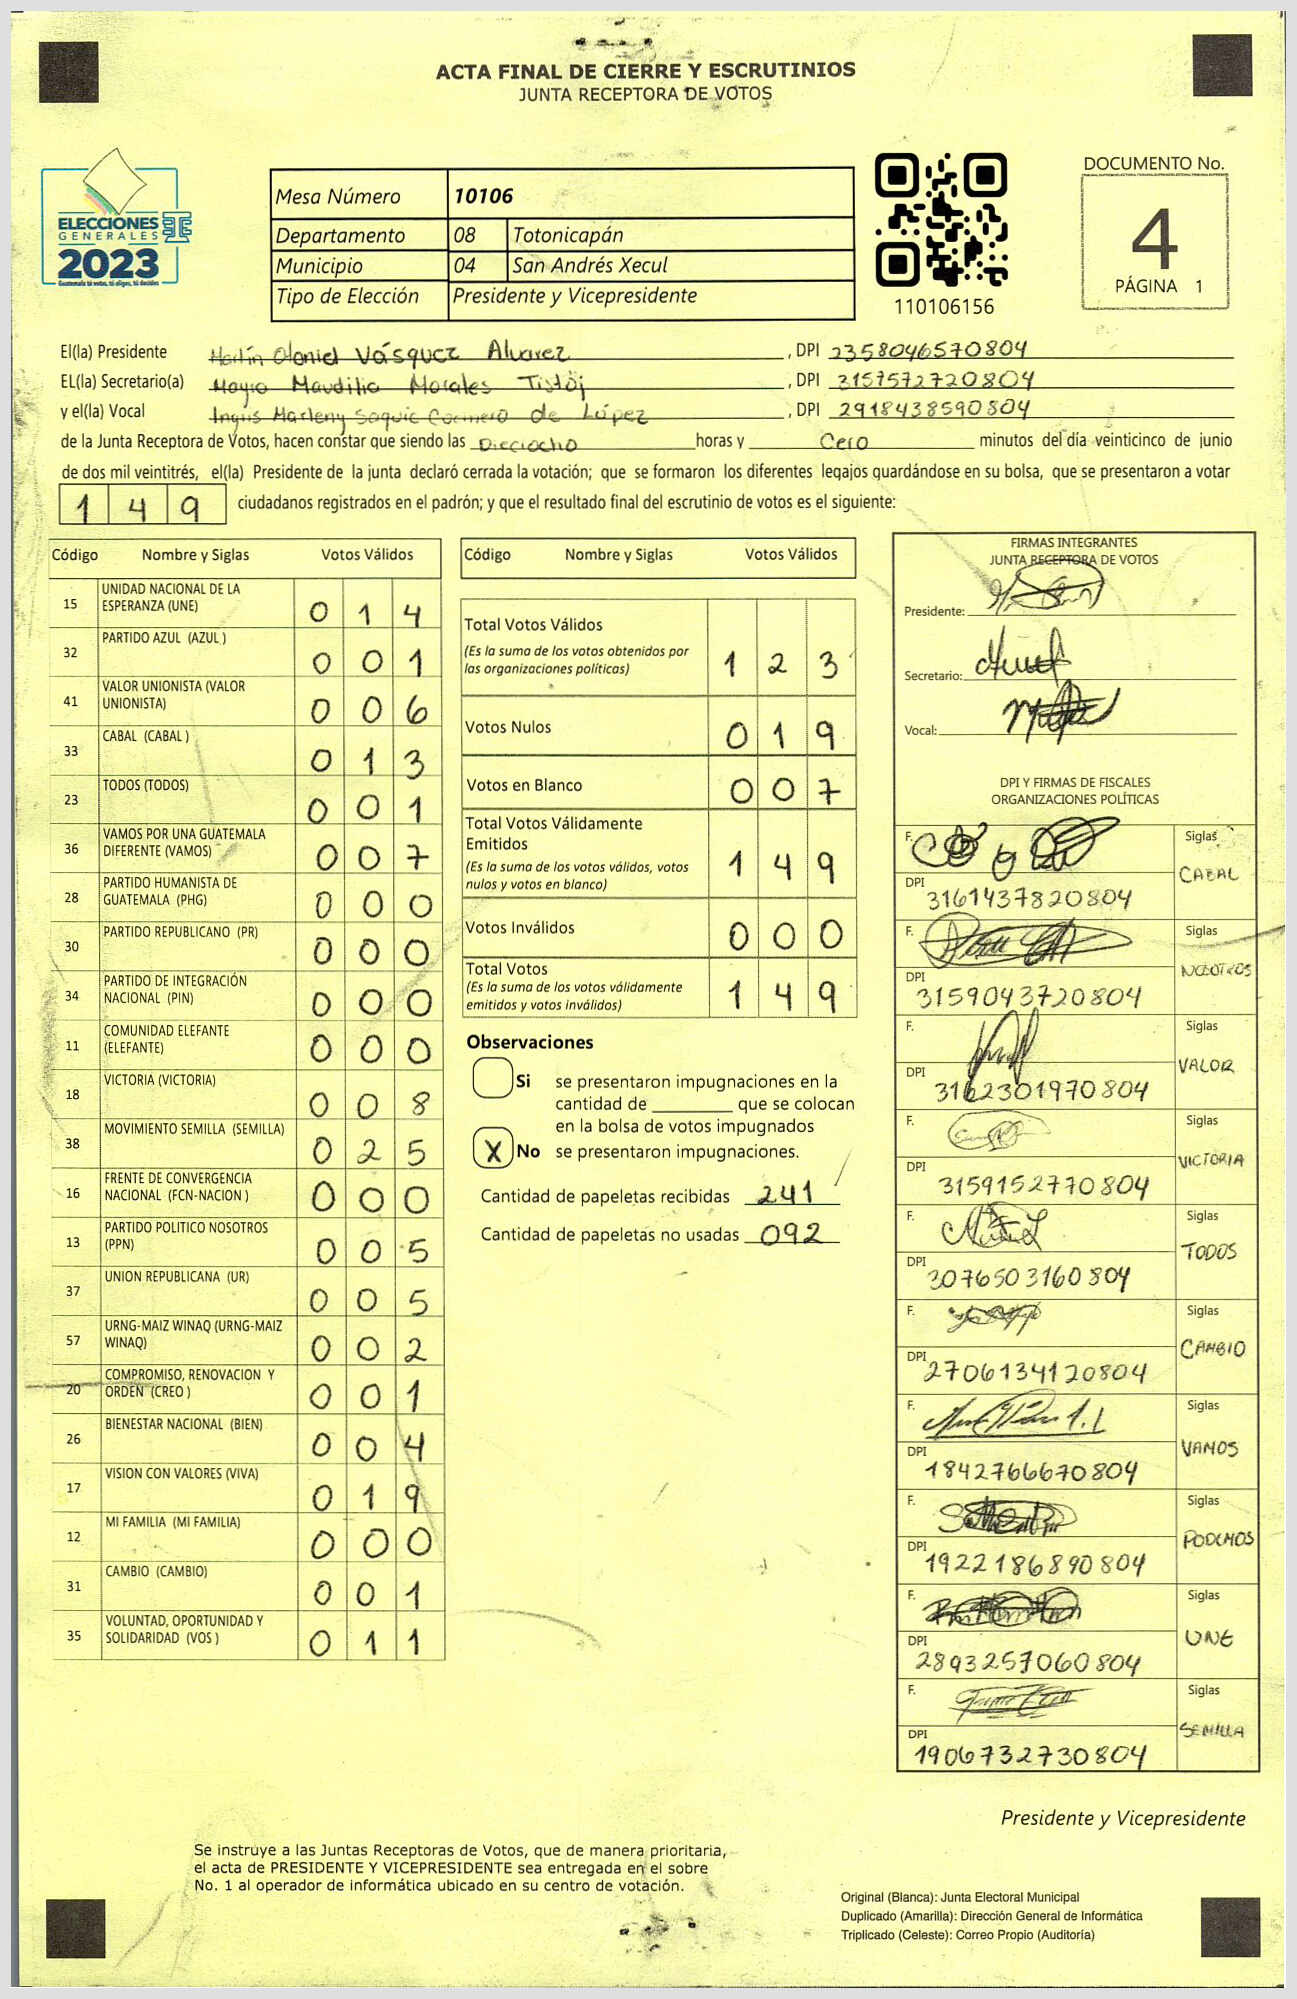 ACTA FINAL DE CIERRE Y ESCRUTINIOS
JUNTA RECEPTORA DE VOTOS
ELECCIONES
GENERALES
2023
Guatemala tú votas, tú eliges, tú decides
Mesa Número 10106
Departamento 08 Totonicapán
Municipio 04 San Andrés Xecul
Tipo de Elección Presidente y Vicepresidente
110106156
DOCUMENTO No.
4
PÁGINA 1
El(la) Presidente Martín Daniel Vásquez Alvarez, DPI 2358046570804
EL(la) Secretario(a) Mayra Maudilia Morales Tistoj, DPI 3157572720804
y el(la) Vocal Marleny Saquic de López, DPI 2918438590804
de la Junta Receptora de Votos, hacen constar que siendo las Dieciocho horas y Cero minutos del día veinticinco de junio
de dos mil veintitrés, el(la) Presidente de la junta declaró cerrada la votación; que se formaron los diferentes legajos guardándose en su bolsa, que se presentaron a votar
149 ciudadanos registrados en el padrón; y que el resultado final del escrutinio de votos es el siguiente:
Código Nombre y Siglas Votos Válidos
15 UNIDAD NACIONAL DE LA ESPERANZA (UNE) 014
32 PARTIDO AZUL (AZUL ) 001
41 VALOR UNIONISTA (VALOR UNIONISTA) 006
33 CABAL (CABAL ) 013
23 TODOS (TODOS) 001
36 VAMOS POR UNA GUATEMALA DIFERENTE (VAMOS) 007
28 PARTIDO HUMANISTA DE GUATEMALA (PHG) 000
30 PARTIDO REPUBLICANO (PR) 000
34 PARTIDO DE INTEGRACIÓN NACIONAL (PIN) 000
11 COMUNIDAD ELEFANTE (ELEFANTE) 000
18 VICTORIA (VICTORIA) 008
38 MOVIMIENTO SEMILLA (SEMILLA) 025
16 FRENTE DE CONVERGENCIA NACIONAL (FCN-NACION ) 000
13 PARTIDO POLITICO NOSOTROS (PPN) 005
37 UNION REPUBLICANA (UR) 005
57 URNG-MAIZ WINAQ (URNG-MAIZ WINAQ) 002
20 COMPROMISO, RENOVACION Y ORDEN (CREO ) 001
26 BIENESTAR NACIONAL (BIEN) 004
17 VISION CON VALORES (VIVA) 019
12 MI FAMILIA (MI FAMILIA) 000
31 CAMBIO (CAMBIO) 001
35 VOLUNTAD, OPORTUNIDAD Y SOLIDARIDAD (VOS ) 011
Código Nombre y Siglas Votos Válidos
Total Votos Válidos 123
(Es la suma de los votos obtenidos por
las organizaciones políticas)
Votos Nulos 019
Votos en Blanco 007
Total Votos Válidamente
Emitidos 149
(Es la suma de los votos válidos, votos
nulos y votos en blanco)
Votos Inválidos 000
Total Votos 149
(Es la suma de los votos válidamente
emitidos y votos inválidos)
Observaciones
Si se presentaron impugnaciones en la
cantidad de ________ que se colocan
en la bolsa de votos impugnados
X No se presentaron impugnaciones.
Cantidad de papeletas recibidas 241
Cantidad de papeletas no usadas 092
FIRMAS INTEGRANTES
JUNTA RECEPTORA DE VOTOS
Presidente:
Secretario:
Vocal:
DPI Y FIRMAS DE FISCALES
ORGANIZACIONES POLÍTICAS
F. Siglas CABAL
DPI 3161437820804
F. Siglas NOSOTROS
DPI 3159043720804
F. Siglas VALOR
DPI 3162301970804
F. Siglas VICTORIA
DPI 3159152770804
F. Siglas TODOS
DPI 3076503160804
F. Siglas CAMBIO
DPI 2706134120804
F. Siglas VAMOS
DPI 1842766670804
F. Siglas PODEMOS
DPI 1922186890804
F. Siglas UNE
DPI 2893257060804
F. Siglas SEMILLA
DPI 1906732730804
Presidente y Vicepresidente
Se instruye a las Juntas Receptoras de Votos, que de manera prioritaria,
el acta de PRESIDENTE Y VICEPRESIDENTE sea entregada en el sobre
No. 1 al operador de informática ubicado en su centro de votación.
Original (Blanca): Junta Electoral Municipal
Duplicado (Amarilla): Dirección General de Informática
Triplicado (Celeste): Correo Propio (Auditoría)